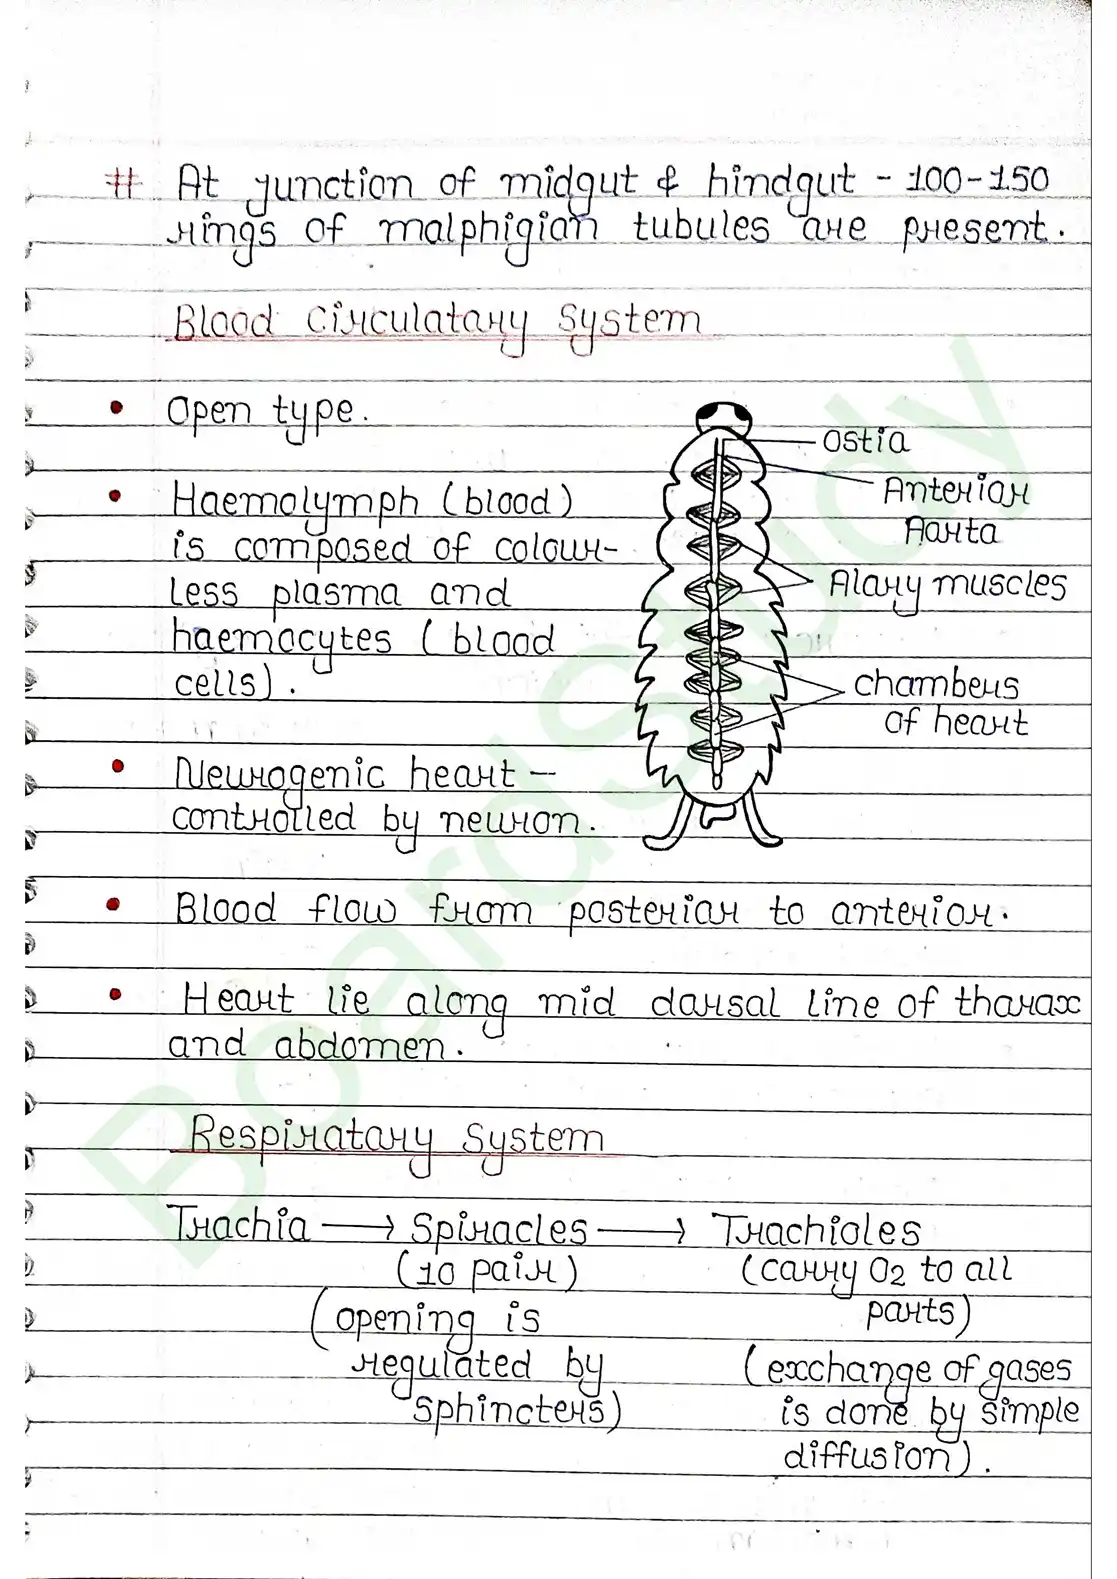 # At junction of midgut & hindgut - 100-150
rings of malphigian tubules are present.
Blood Circulatory System
• Open type.
• Haemolymph (blood)
is composed of colour-
less plasma and
haemocytes (blood
cells).
Ostia
Anterior
Aorta
Alary muscles
chambers
of heart
• Neurogenic heart –
controlled by neuron.
• Blood flow from posterior to anterior.
• Heart lie along mid dorsal line of thorax
and abdomen.
Respiratory System
Trachia → Spiracles → Trachioles
(10 pair) (carry O2 to all
parts)
(opening is
regulated by
sphincters)
(exchange of gases
is done by simple
diffusion).
BoardStudy